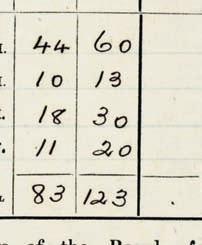 44 60
10 13
18 30
11 20
83 123
of the